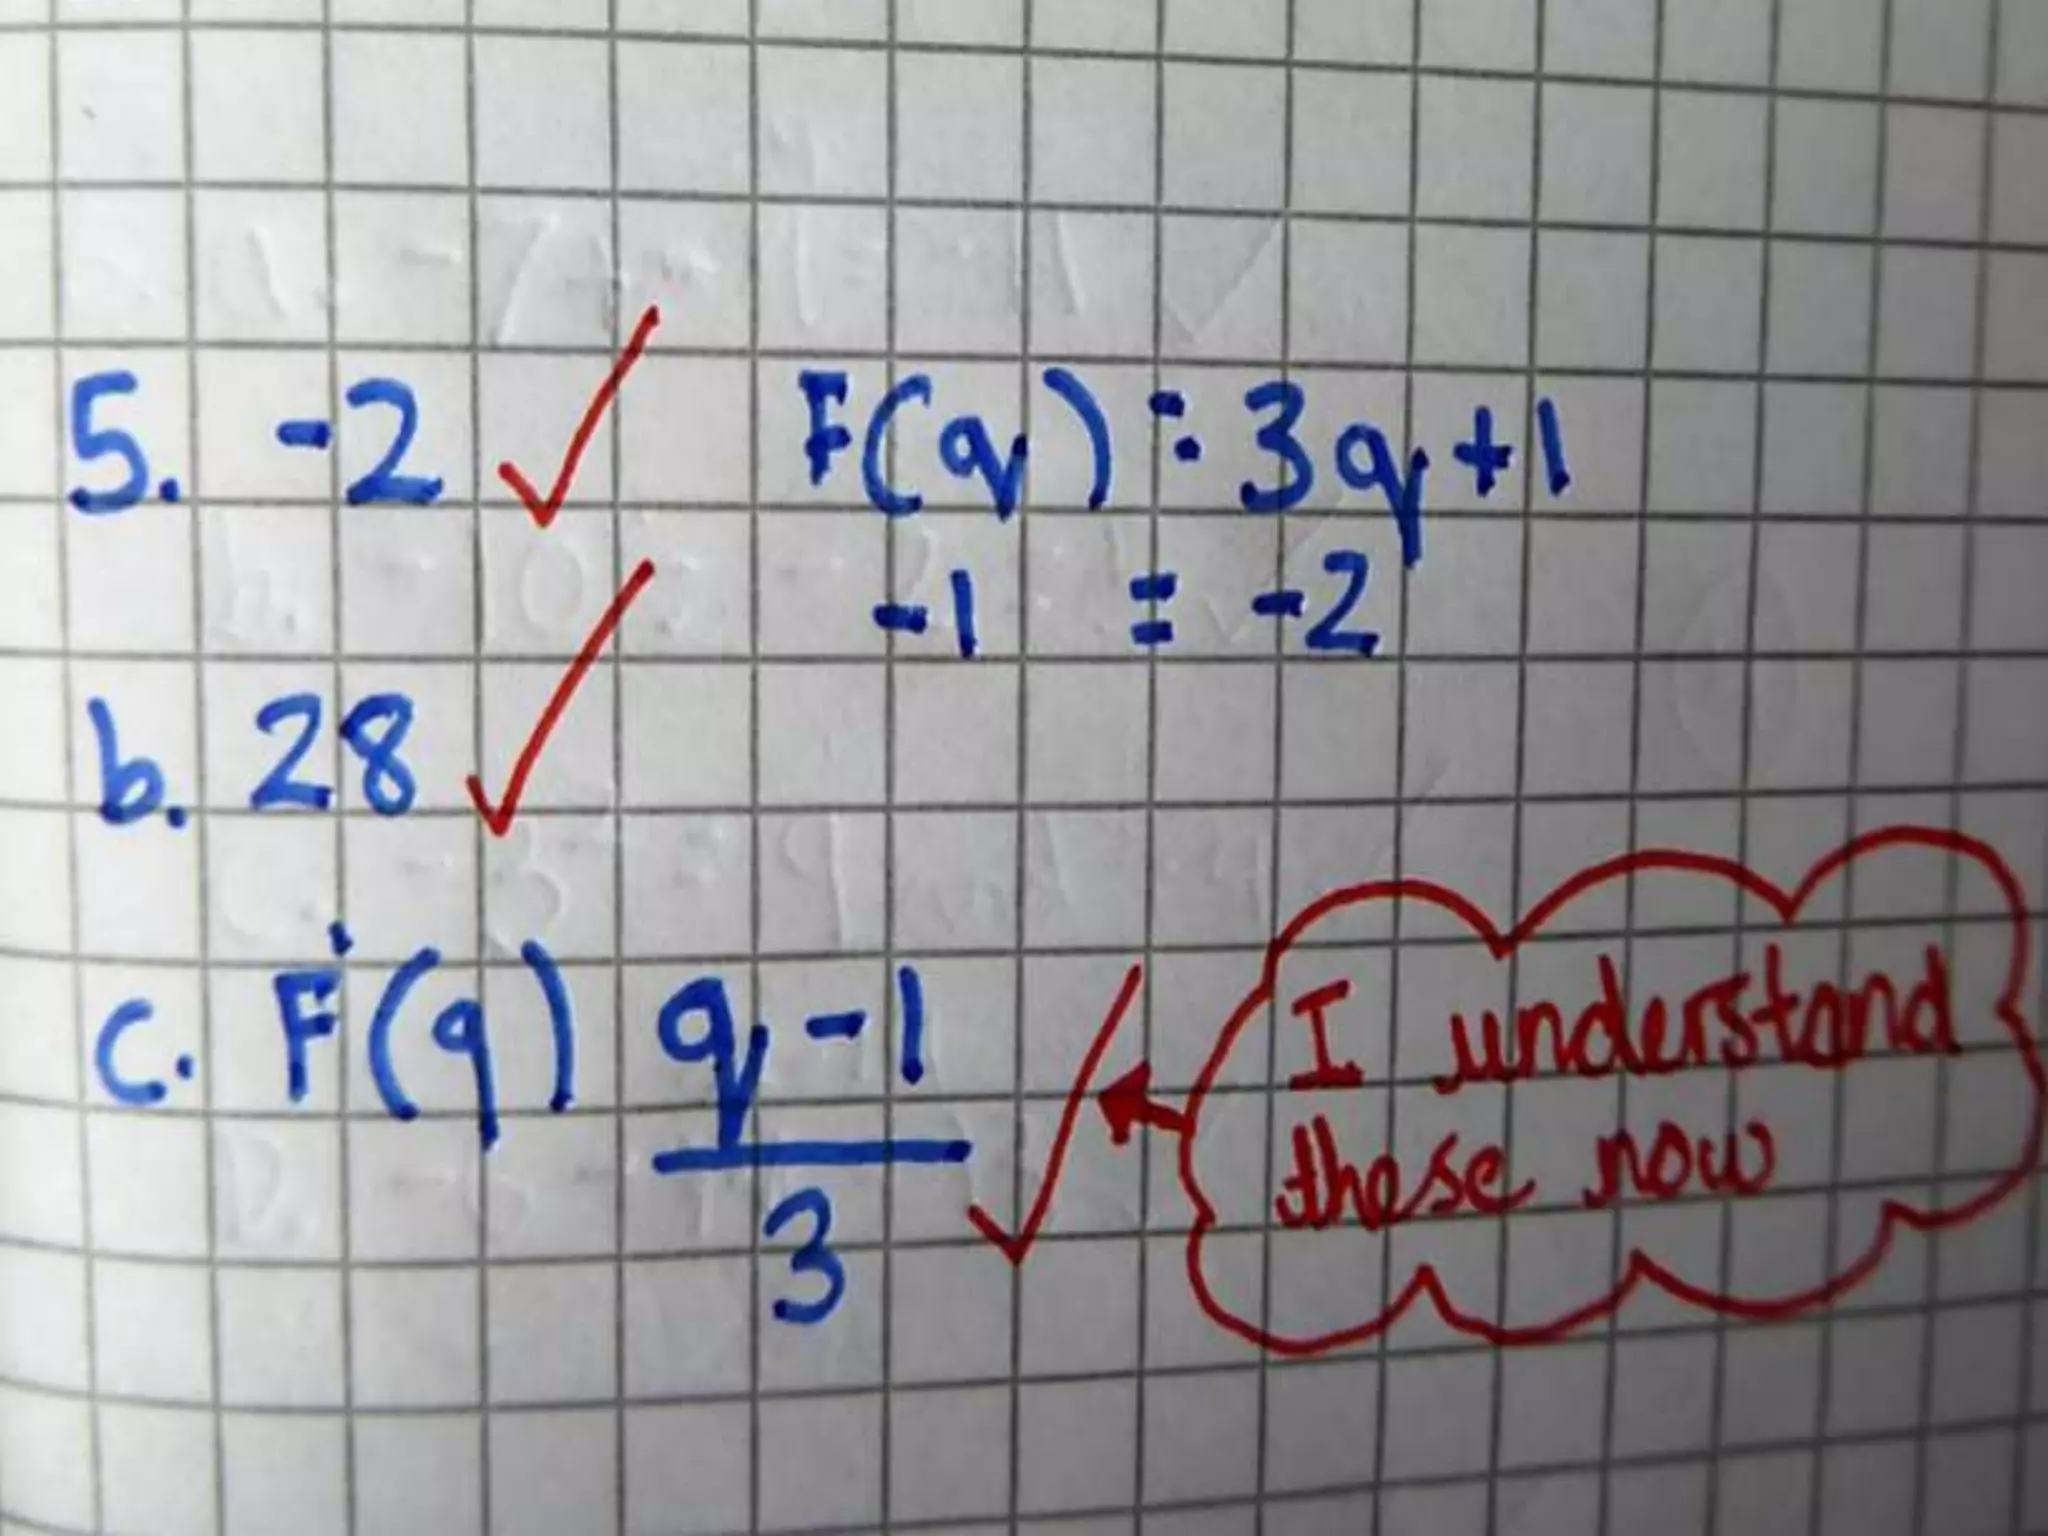 5. -2 ✓ F(q) : 3q+1
-1 = -2
b. 28 ✓
c. F'(q) q-1 ✓
3
I understand
these now